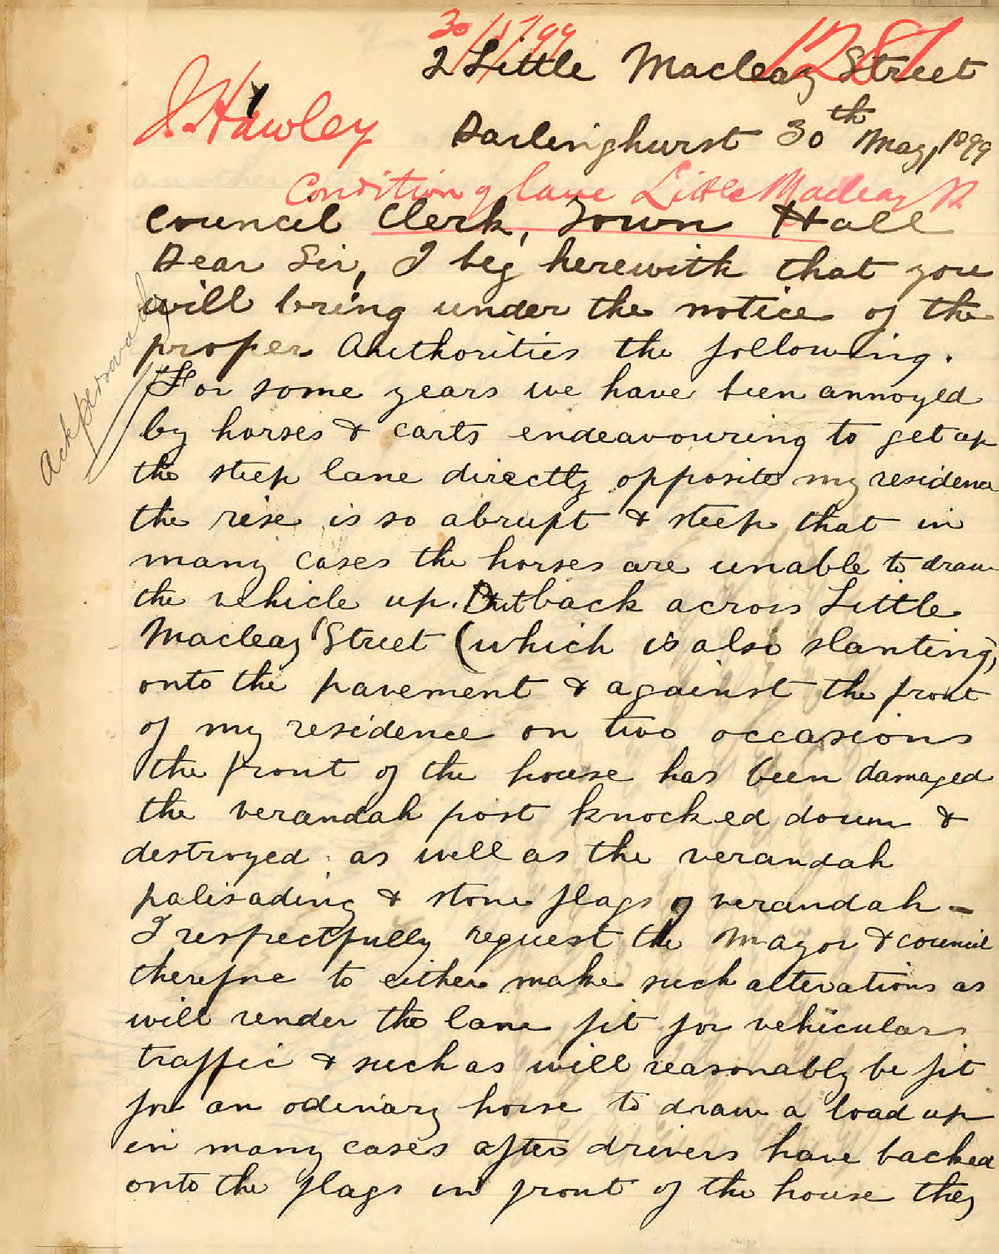 30/5/99
1281
2 Little Macleay Street
J. Hawley
Darlinghurst 30th May, 1899
Condition of lane Little Macleay St
Council Clerk, Town Hall
Dear Sir, I beg herewith that you
will bring under the notice of the
proper Authorities the following.
For some years we have been annoyed
by horses & carts endeavouring to get up
the steep lane directly opposite my residence
the rise is so abrupt & steep that in
many cases the horses are unable to draw
the vehicle up. But back across Little
Macleay Street (which is also slanting)
onto the pavement & against the front
of my residence on two occasions
the front of the house has been damaged
the verandah post knocked down &
destroyed as well as the verandah
palisading & stone flags of verandah -
I respectfully request the Mayor & council
therefore to either make such alterations as
will render the lane fit for vehicular
traffic & such as will reasonably be fit
for an odinary horse to draw a load up
in many cases after drivers have backed
onto the flags in front of the house they